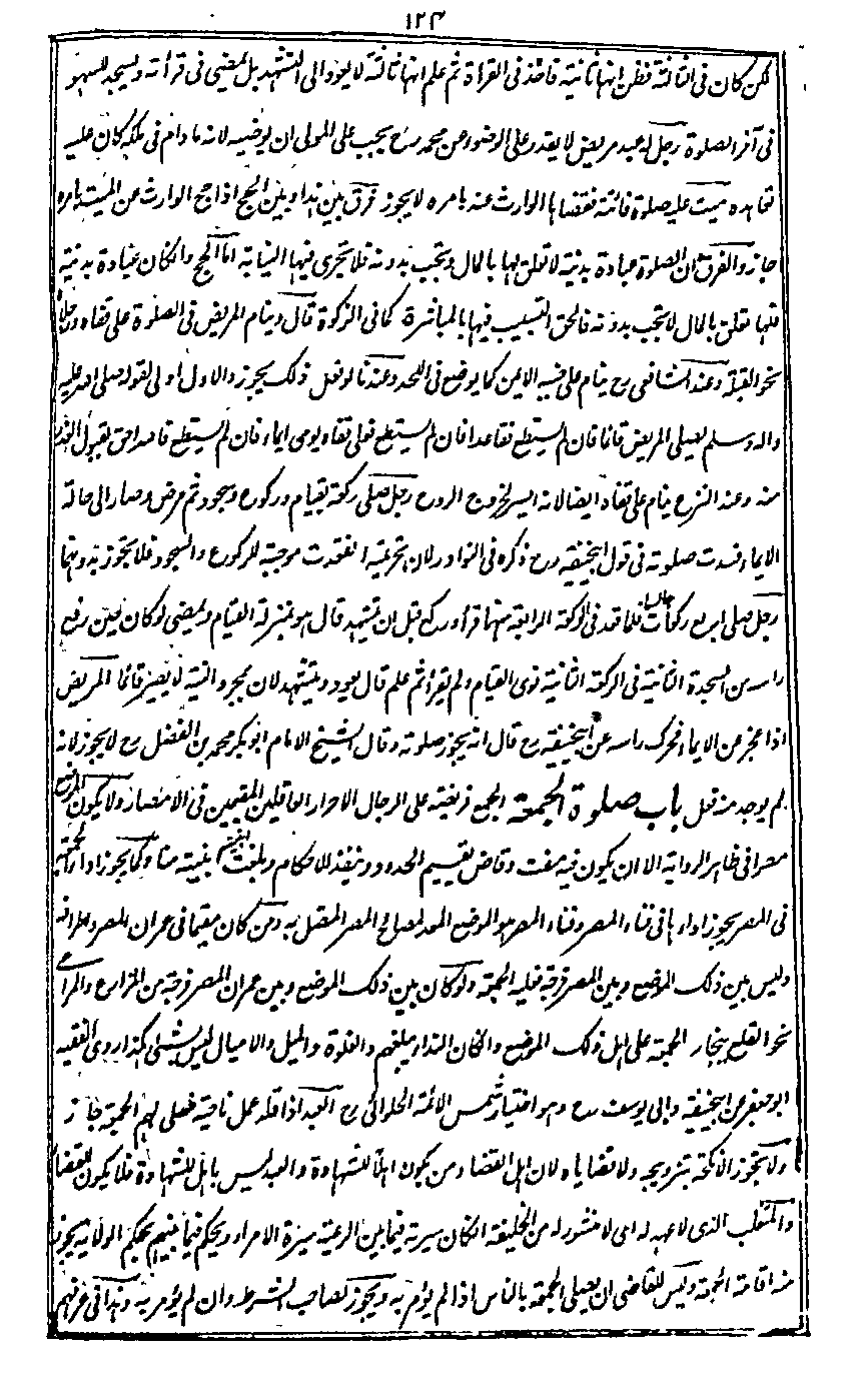 ١٢٤
لمن كان فى الثالثة فظن انها ثانية فاخذ فى القرأة ثم علم انها ثالثة لا يعود الى التشهد بل يمضى فى قرأته ويسجد للسهو
فى آخر الصلوة رجل له عبد مريض لا يقدر على الوضوء عن محمد رح يجب على المولى ان يوضيه لانه ما دام فى ملكه كان عليه
تعاهده ميت عليه صلوة فائتة فقضاها الوارث عنه بامره لا يجوز فرق بين هذا وبين الحج اذا حج الوارث عن الميت بامره
جاز والفرق ان الصلوة عبادة بدنية لا تعلق لها بالمال وتجب بدونه فلا تجرى فيها النيابة اما الحج وان كان عبادة بدنية
فلها تعلق بالمال لا تجب بدونه فالحق التسبيب فيها بالمباشرة كما فى الزكوة قال وينام المريض فى الصلوة على قفاه ورجلاه
نحو القبلة وعند الشافعى رح ينام على جنبه الايمن كما يوضع فى اللحد وعندنا لو فعل ذلك يجوز والاول اولى لقوله صلى الله عليه
واله وسلم يصلى المريض قائما فان لم يستطع فقاعدا فان لم يستطع فعلى قفاه يومى ايماء فان لم يستطع فالله احق بقبول العذر
منه وعند النزع ينام على قفاه ايضا لانه ايسر لخروج الروح رجل صلى ركعة بقيام وركوع وسجود ثم مرض وصار الى حالة
الايماء فسدت صلوته فى قول ابيحنيفة رح ذكره فى النوادر لان تحريمته انعقدت موجبة للركوع والسجود فلا تجوز بدونهما
رجل صلى اربع ركعات جالسا فلما قعد فى الركعة الرابعة منها قرأ وركع قبل ان يتشهد قال هو بمنزلة القيام ويمضى لو كان حين رفع
راسه من السجدة الثانية فى الركعة الثانية نوى القيام ولم يقرأ ثم علم قال يعود ويتشهد لان بمجرد النية لا يصير قائما المريض
اذا عجز عن الايماء فحرك راسه عن ابيحنيفة رح قال انه يجوز صلوته وقال الشيخ الامام ابو بكر محمد بن الفضل رح لا يجوز لانه
لم يوجد منه فعل باب صلوة الجمعة الجمعة فريضة على الرجال الاحرار العاقلين المقيمين فى الامصار ولا يكون الموضع
مصرا فى ظاهر الرواية الا ان يكون فيه مفت وقاض يقيم الحدود وينفذ الاحكام وبلغت ابنيته ابنية منا وكما يجوز اداء الجمعة
فى المصر يجوز اداؤها فى فناء المصر وفناء المصر هو الموضع المعد لمصالح المصر المتصل به ومن كان مقيما فى عمران المصر واطرافه
وليس بين ذلك الموضع وبين المصر فرجة فعليه الجمعة ولو كان بين ذلك الموضع وبين عمران المصر فرجة من المزارع والمراعى
نحو القلع ببخارا لا جمعة على اهل ذلك الموضع وان كان النداء يبلغهم والغلوة والميل والاميال ليس بشئ هكذا روى الفقيه
ابو جعفر عن ابيحنيفة وابى يوسف رح وهو اختيار شمس الائمة الحلوانى رح العبد اذا قلد عمل ناحية فصلى بهم الجمعة جاز
ولا تجوز الانكحة بتزويجه ولا قضاياه لان اهل القضاء من يكون اهلا للشهادة والعبد ليس باهل للشهادة فلا يكون للقضاء
والمتغلب الذى لا عهد له اى لا منشور له من الخليفة ان كان سيرته فيما بين الرعية سيرة الامراء ويحكم فيما بينهم بحكم الولاية يجوز
منه اقامة الجمعة وليس للقاضى ان يصلى الجمعة بالناس اذا لم يؤمر به ويجوز لصاحب الشرط وان لم يؤمر به وهذا فى عرفهم